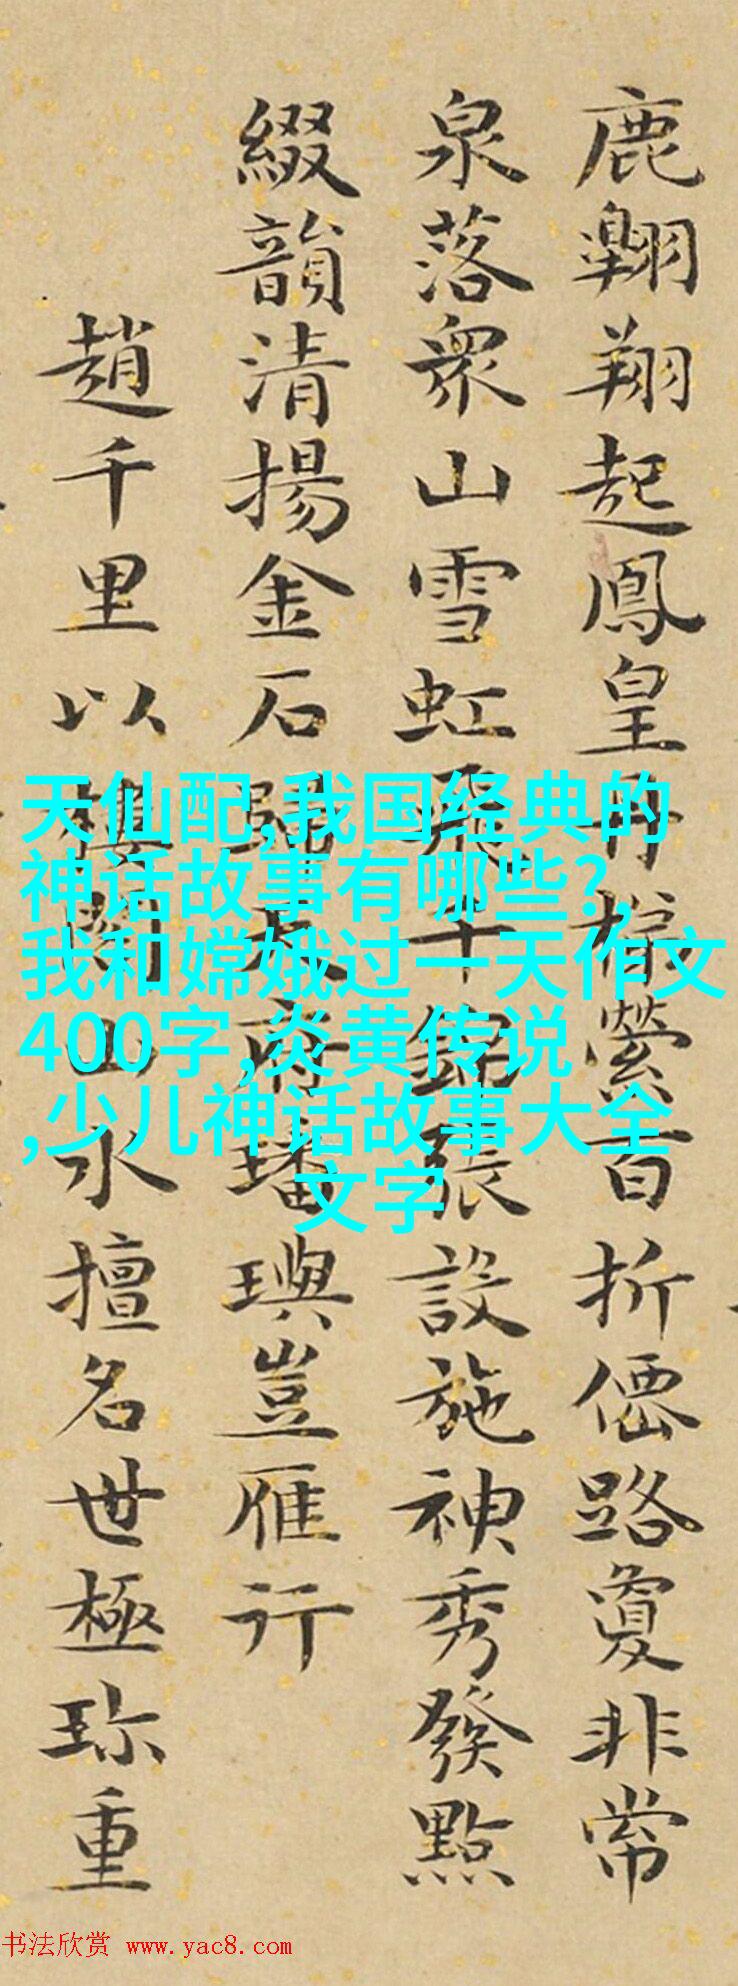 鹿翺翔起鳳皇丹梯縈百折僊路夐非常
泉落衆山雪虹飛千錦張設施神秀發點
綴韻清揚金石歸天府璠璵豈雁行
趙千里以樓閣山水擅名世極珎重
天仙配,我国经典的
神话故事有哪些?,
我和嫦娥过一天作文
400字,炎黄传说
,少儿神话故事大全
文字
书法欣赏 www.yac8.com